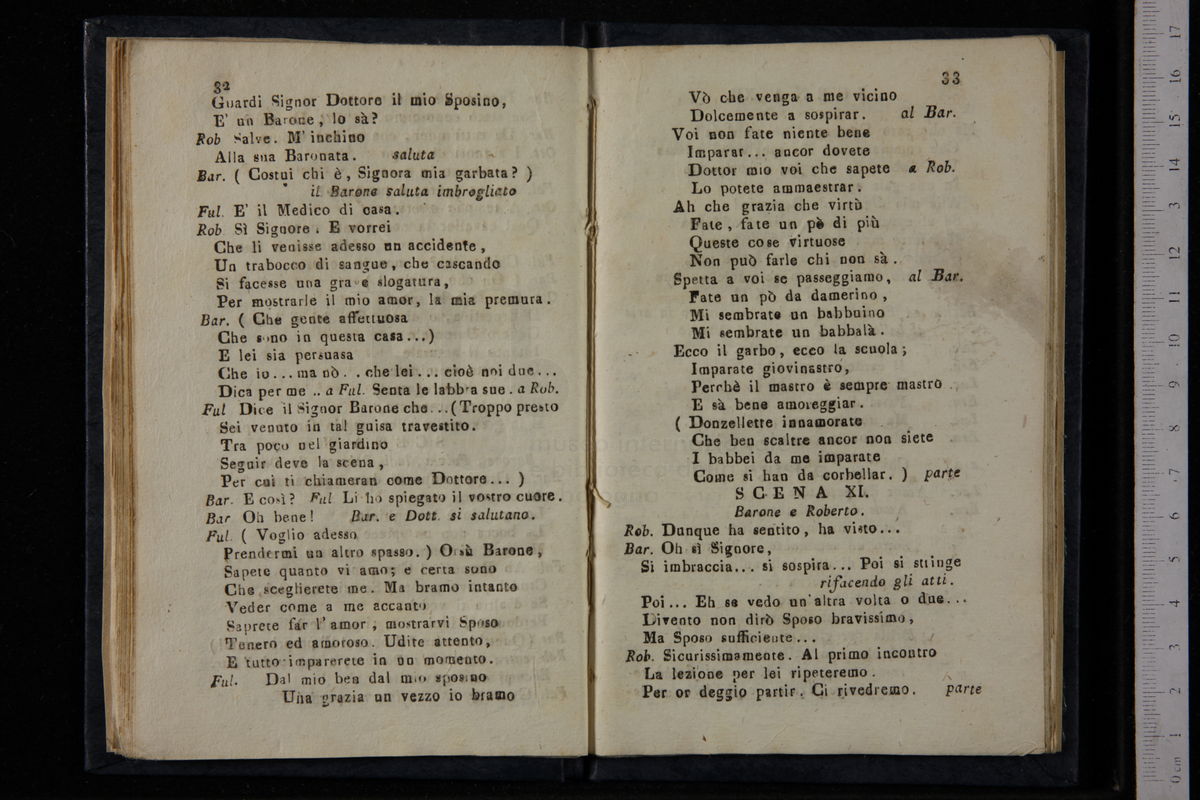 32
Guardi Signor Dottore il mio Sposino,
E' un Barone, lo sà?
Rob Salve. M' inchino
Alla sua Baronata. saluta
Bar. ( Costui chi è, Signora mia garbata? )
il Barone saluta imbrogliato
Ful. E' il Medico di casa.
Rob Sì Signore. E vorrei
Che li venisse adesso un accidente,
Un trabocco di sangue, che cascando
Si facesse una grave slogatura,
Per mostrarle il mio amor, la mia premura.
Bar. ( Che gente affettuosa
Che sono in questa casa...)
E lei sia persuasa
Che io... ma nò . . che lei... cioè noi due...
Dica per me .. a Ful. Senta le labbra sue. a Rob.
Ful Dice il Signor Barone che...(Troppo presto
Sei venuto in tal guisa travestito.
Tra poco nel giardino
Seguir deve la scena,
Per cui ti chiameran come Dottore... )
Bar. E così? Ful Li ho spiegato il vostro cuore.
Bar Oh bene! Bar. e Dott. si salutano.
Ful. ( Voglio adesso
Prendermi un altro spasso. ) Orsù Barone,
Sapete quanto vi amo; e certa sono
Che sceglierete me. Ma bramo intanto
Veder come a me accanto
Saprete far l' amor, mostrarvi Sposo
Tenero ed amoroso. Udite attento,
E tutto imparerete in un momento.
Ful. Dal mio ben dal mio sposino
Una grazia un vezzo io bramo
33
Vò che venga a me vicino
Dolcemente a sospirar. al Bar.
Voi non fate niente bene
Imparar... ancor dovete
Dottor mio voi che sapete a Rob.
Lo potete ammaestrar.
Ah che grazia che virtù
Fate, fate un pè di più
Queste cose virtuose
Non può farle chi non sà.
Spetta a voi se passeggiamo, al Bar.
Fate un pò da damerino,
Mi sembrate un babbuino
Mi sembrate un babbalà.
Ecco il garbo, ecco la scuola;
Imparate giovinastro,
Perchè il mastro è sempre mastro
E sà bene amoreggiar.
( Donzellette innamorate
Che ben scaltre ancor non siete
I babbei da me imparate
Come si han da corbellar. ) parte
SCENA XI.
Barone e Roberto.
Rob. Dunque ha sentito, ha visto...
Bar. Oh sì Signore,
Si imbraccia... si sospira... Poi si stringe
rifacendo gli atti.
Poi... Eh se vedo un'altra volta o due...
Divento non dirò Sposo bravissimo,
Ma Sposo sufficiente...
Rob. Sicurissimamente. Al primo incontro
La lezione per lei ripeteremo.
Per or deggio partir. Ci rivedremo. parte
0 cm 1 2 3 4 5 6 7 8 9 10 11 12 13 14 15 16 17